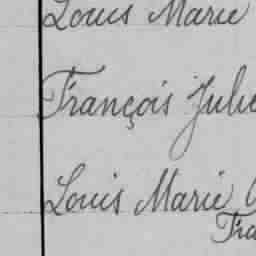 Louis Marie
François Julie
Louis Marie
Fra